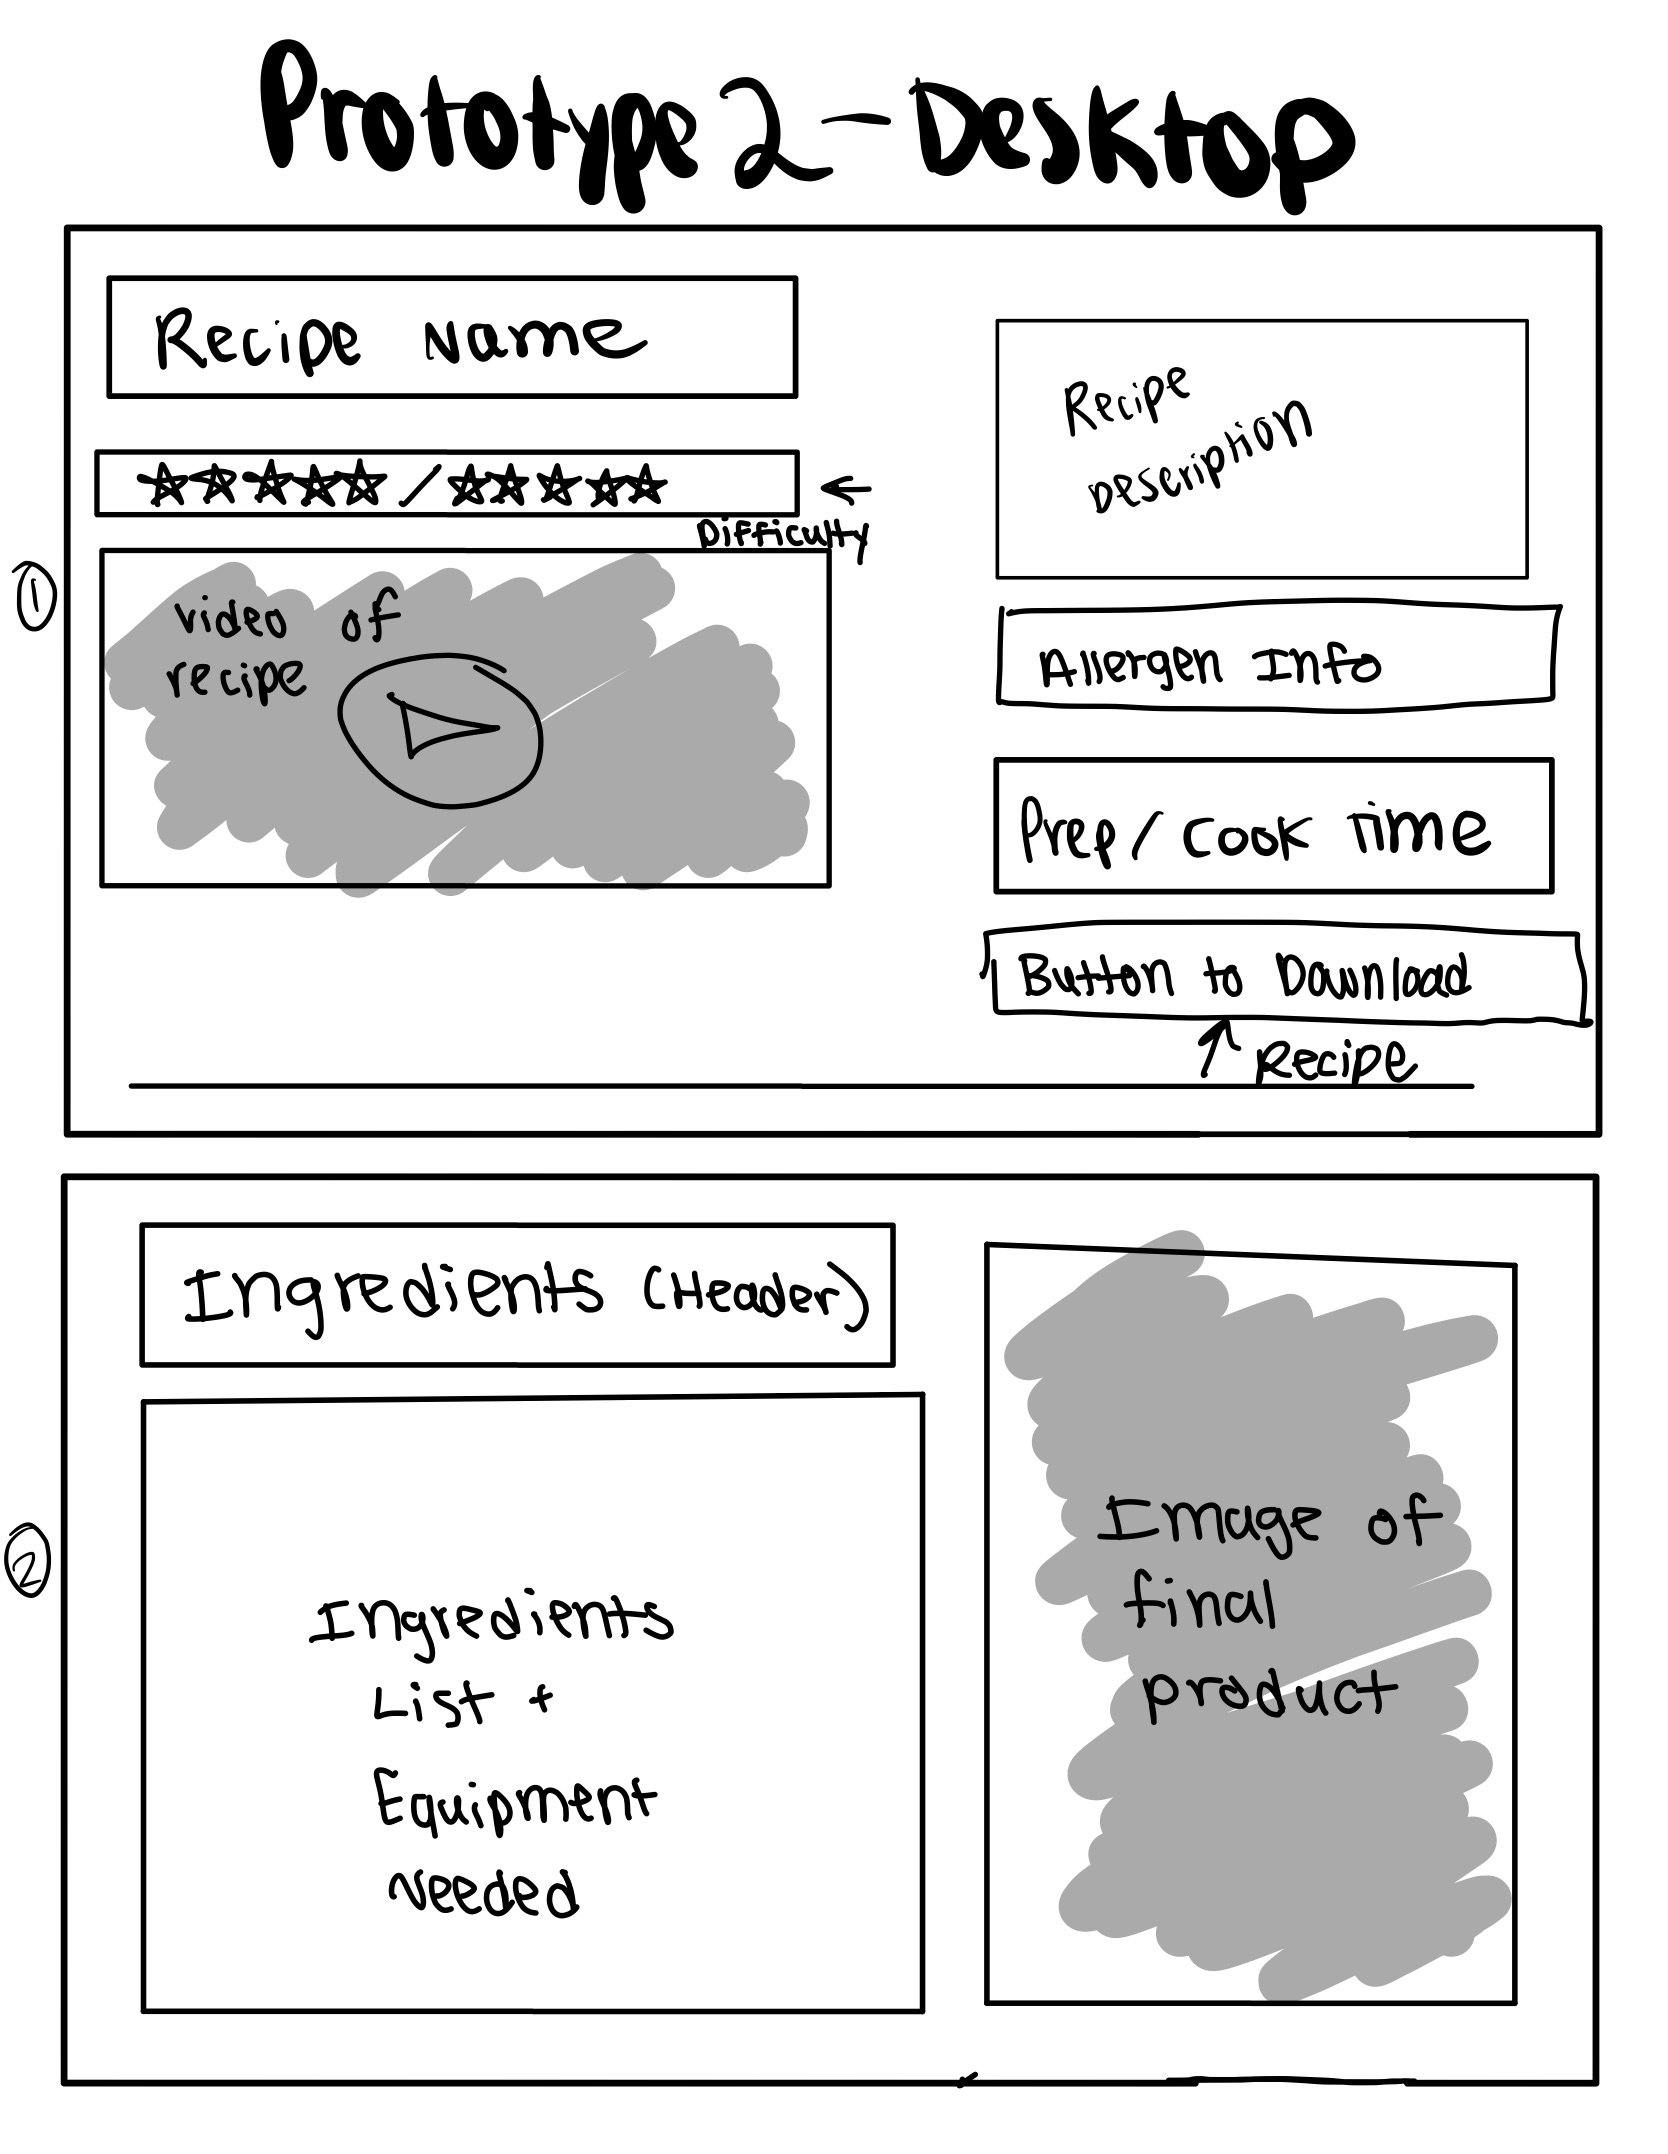 Prototype 2 - Desktop
Recipe Name
/
Difficulty
1
video of
recipe
Recipe
Description
Allergen Info
Prep / Cook Time
Button to Download
Recipe
2
Ingredients (Header)
Ingredients
List +
Equipment
Needed
Image of
final
product